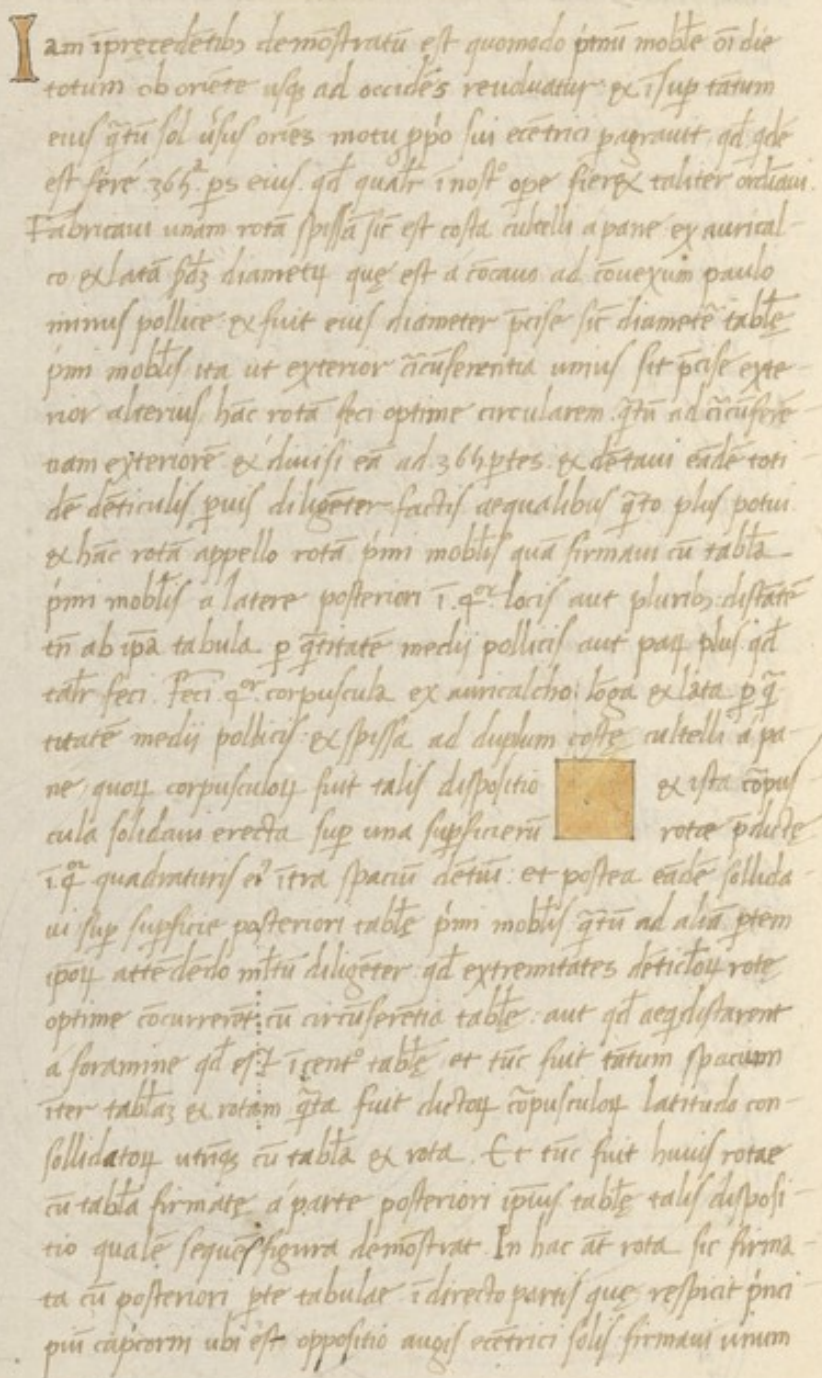 Iam ī precedētibꝫ demōstratū est quomodo p̍mū mobl̄e oī die
totum ob oriēte usqꝫ ad occidēs reuoluatur & īsup̱ tātum
eius q̄tū sol ūsus oriēs motu pp̍o sui ecētrici pagrauit qd̄ qdē
est fere 365ᵃ ps eius. qd̄ qualr̄ ī nostᵒ ope fieret taliter ordīaui.
Fabricaui unam rotā spissā sic̄ est costa cultelli a pane ex aurical-
co & latā diametri quę est á cōcauo ad cōuexum paulo
minus pollice & fuit eius diameter p̄cise sic̄ diameter tabl̄ę
p̍mi mobl̄is ita ut exterior circūferentia unius sit p̄cise exte-
rior alterius hāc rotā feci optime circularem q̄tū ad circūferē-
tiam exteriorē & diuisi eā ad 365 ptes & dētaui eādē toti-
dē dēticulis p̱uis diligēter factis aequalibus q̄to plus potui.
& hāc rotā appello rotā p̍mi mobl̄is quā firmaui cū tabl̄a
p̍mi mobl̄is a latere posteriori ī .4ᵒʳ locis aut pluribꝫ distātē
tn̄ ab ip̄a tabula p̱ q̄titatē medii pollicis aut paꝝ plus qd̄
talr̄ feci. Feci .4ᵒʳ corpuscula ex auricalcho lōga & lata p̱ q̄
titatē medii pollicis & spissa ad duplum costę cultelli á pa-
ne quoꝝ corpusculoꝝ fuit talis dispositio & ista cōpus
cula solidaui erecta sup̱ una sup̱ficierū rotae p̄dictę
ī .4ᵒʳ quadraturis ei᾽ ītra spaciū dētiū: et postea eādē sollida-
ui sup̱ sup̱ficie posteriori tabl̄ę p̍mi mobl̄is q̄tū ad aliā p̱tem
ipoꝝ attēdēdo ml̄tū diligēter qd̄ extremitates dēticl̄oꝝ rotę
optime cōcurrerēt cū circūferētia tabl̄ę: aut qd̄ aeq̍distarent
á foramine qd̄ est ī centᵒ tabl̄ę et tūc fuit tātum spacium
īter tabl̄aꝫ & rotam q̄ta fuit dictoꝝ cōpusculoꝝ latitudo con-
sollidatoꝝ utrīqꝫ cū tabl̄a & rota. Et tūc fuit huius rotae
cū tabl̄a firmatę á parte posteriori ipius tabl̄ę talis disposi-
tio qualē sequēs figura demōstrat. In hac āt rota sic firma-
ta cū posteriori p̱te tabulae ī directo partis quę respicit p̍nci-
piū capcorni ubi est oppositio augis ecētrici solis firmaui unum